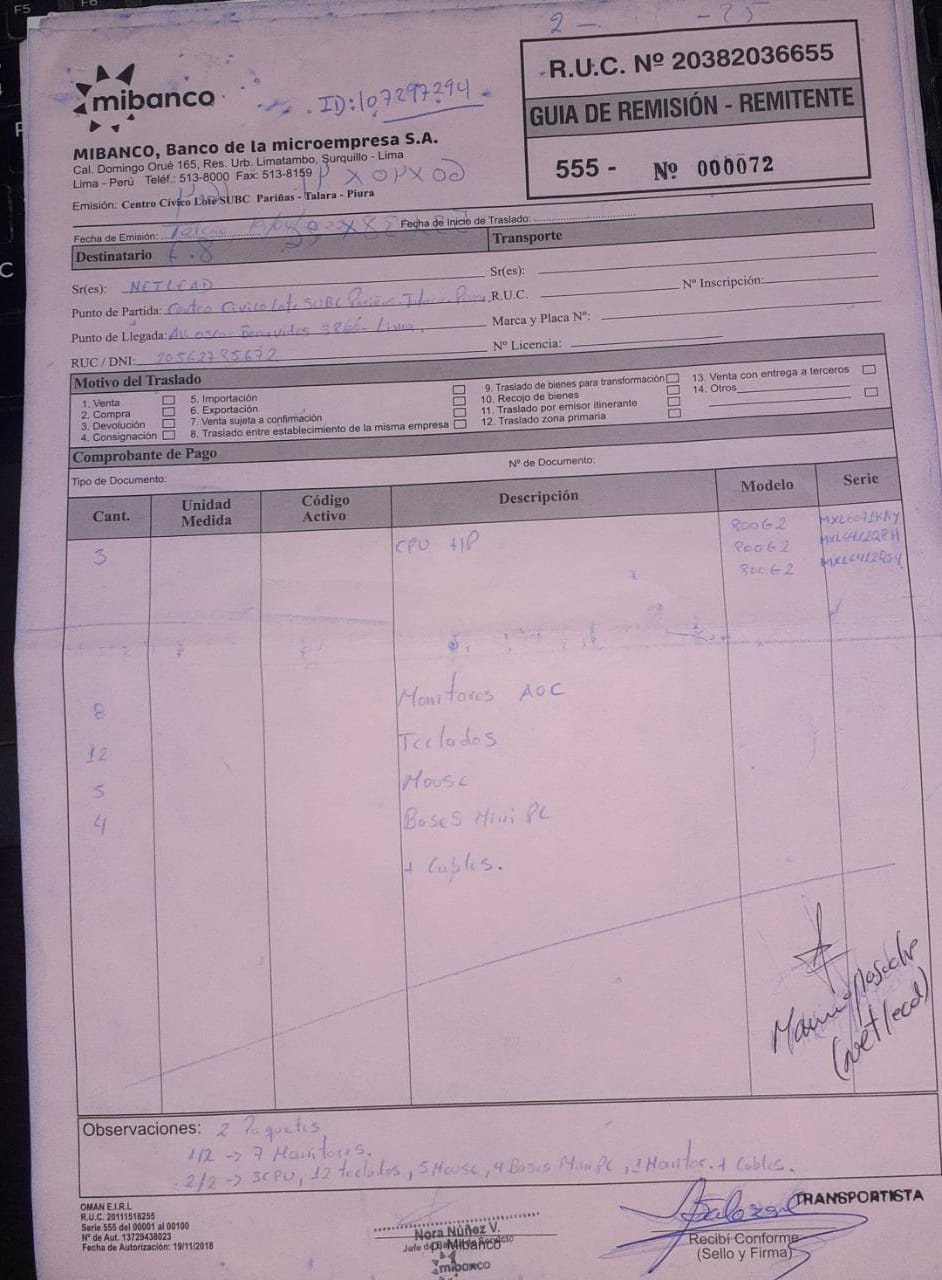 F5
mibanco
ID:107297294
R.U.C. Nº 20382036655
GUIA DE REMISIÓN - REMITENTE
555 - Nº 000072
MIBANCO, Banco de la microempresa S.A.
Cal. Domingo Orué 165, Res. Urb. Limatambo, Surquillo - Lima
Lima - Perú Teléf.: 513-8000 Fax: 513-8159
Emisión: Centro Cívico Lote SUBC Pariñas - Talara - Piura
Fecha de Emisión: Fecha de Inicio de Traslado:
Destinatario Transporte
Sr(es): NETLEAD Sr(es):
Punto de Partida: Centro Civico Lote SUBC Pariñas Talara Piura R.U.C. Nº Inscripción:
Punto de Llegada: Av. Oscar Benavides 3866 - Lima. Marca y Placa Nº:
RUC / DNI: 20562785672 Nº Licencia:
Motivo del Traslado
1. Venta 5. Importación 9. Traslado de bienes para transformación 13. Venta con entrega a terceros
2. Compra 6. Exportación 10. Recojo de bienes 14. Otros
3. Devolución 7. Venta sujeta a confirmación 11. Traslado por emisor itinerante
4. Consignación 8. Traslado entre establecimiento de la misma empresa 12. Traslado zona primaria
Comprobante de Pago
Tipo de Documento: Nº de Documento:
Cant. Unidad Medida Código Activo Descripción Modelo Serie
3 CPU HP 800G2
800G2 MXL6412Q8H
800G2 MXL6412QSY
8 Monitores AOC
12 Teclados
5 Mouse
4 Bases Mini PC
+ Cables.
(Netlead)
Observaciones: 2 Paquetes
1/2 -> 7 Monitores.
2/2 -> 3CPU, 12 teclados, 5 Mouse, 4 Bases Mini PC, 1 Monitor + Cables.
OMAN E.I.R.L
R.U.C. 20111518255
Serie 555 del 00001 al 00100
Nº de Aut. 13729438023
Fecha de Autorización: 19/11/2018
Nora Núñez V.
Mibanco
mibanco
TRANSPORTISTA
Recibí Conforme
(Sello y Firma)